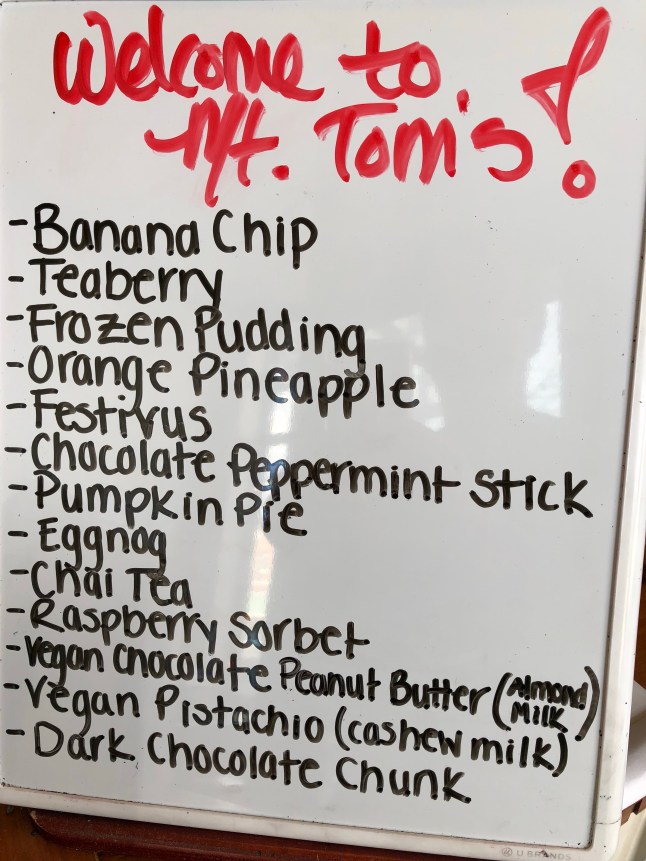 Welcome to
Mt. Tom's!
- Banana Chip
- Teaberry
- Frozen Pudding
- Orange Pineapple
- Festivus
- Chocolate Peppermint Stick
- Pumpkin Pie
- Eggnog
- Chai Tea
- Raspberry Sorbet
- Vegan Chocolate Peanut Butter (Almond Milk)
- Vegan Pistachio (cashew milk)
- Dark Chocolate Chunk
U BRANDS